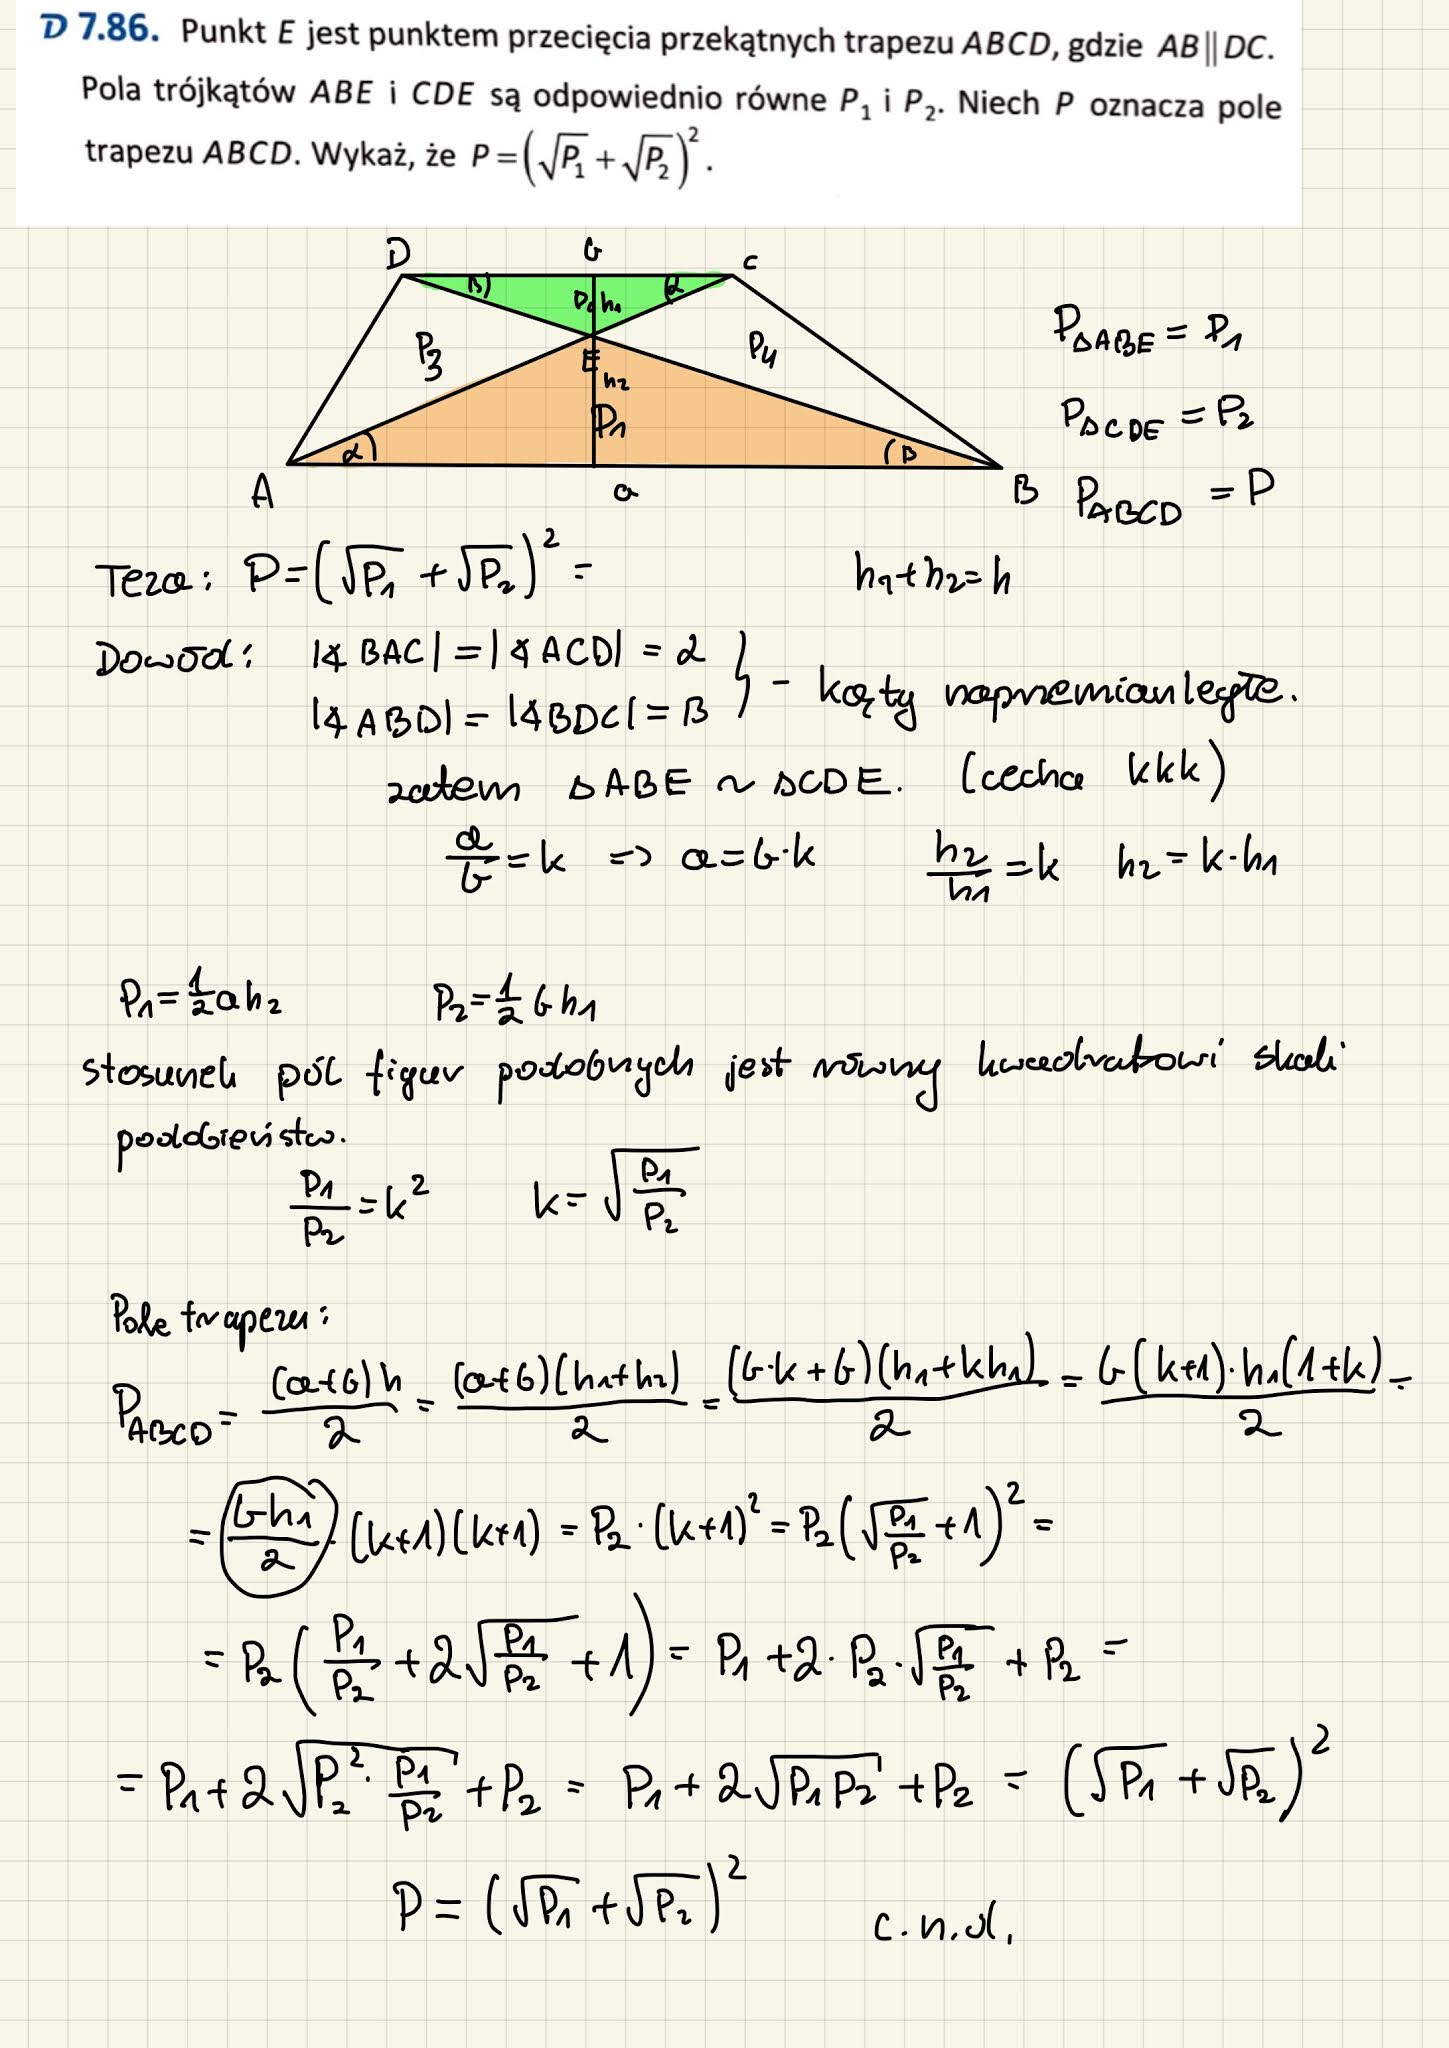 D 7.86. Punkt E jest punktem przecięcia przekątnych trapezu ABCD, gdzie AB || DC.
Pola trójkątów ABE i CDE są odpowiednio równe P₁ i P₂. Niech P oznacza pole
trapezu ABCD. Wykaż, że P = (√P₁ + √P₂)².
D b C
β) P₂ h₁ (α
P₃ E P₄
h₂
P₁
α) (β
A a B
P△ABE = P₁
P△CDE = P₂
P ABCD = P
Teza: P = (√P₁ + √P₂)² =
h₁+h₂=h
Dowód: |∢BAC| = |∢ACD| = α
|∢ABD| = |∢BDC| = β } - kąty naprzemianległe.
zatem △ABE ~ △CDE. (cecha kkk)
a/b = k => a=b·k h₂/h₁ = k h₂ = k·h₁
P₁ = 1/2 ah₂ P₂ = 1/2 bh₁
stosunek pól figur podobnych jest równy kwadratowi skali
podobieństw.
P₁/P₂ = k² k = √(P₁/P₂)
Pole trapezu:
P ABCD = (a+b)h/2 = (a+b)(h₁+h₂)/2 = (b·k+b)(h₁+kh₁)/2 = b(k+1)·h₁(1+k)/2 =
= bh₁/2 · (k+1)(k+1) = P₂·(k+1)² = P₂(√(P₁/P₂) + 1)² =
= P₂(P₁/P₂ + 2√(P₁/P₂) + 1) = P₁ + 2·P₂·√(P₁/P₂) + P₂ =
= P₁ + 2√(P₂²·P₁/P₂) + P₂ = P₁ + 2√(P₁P₂) + P₂ = (√P₁ + √P₂)²
P = (√P₁ + √P₂)²
c.n.d.